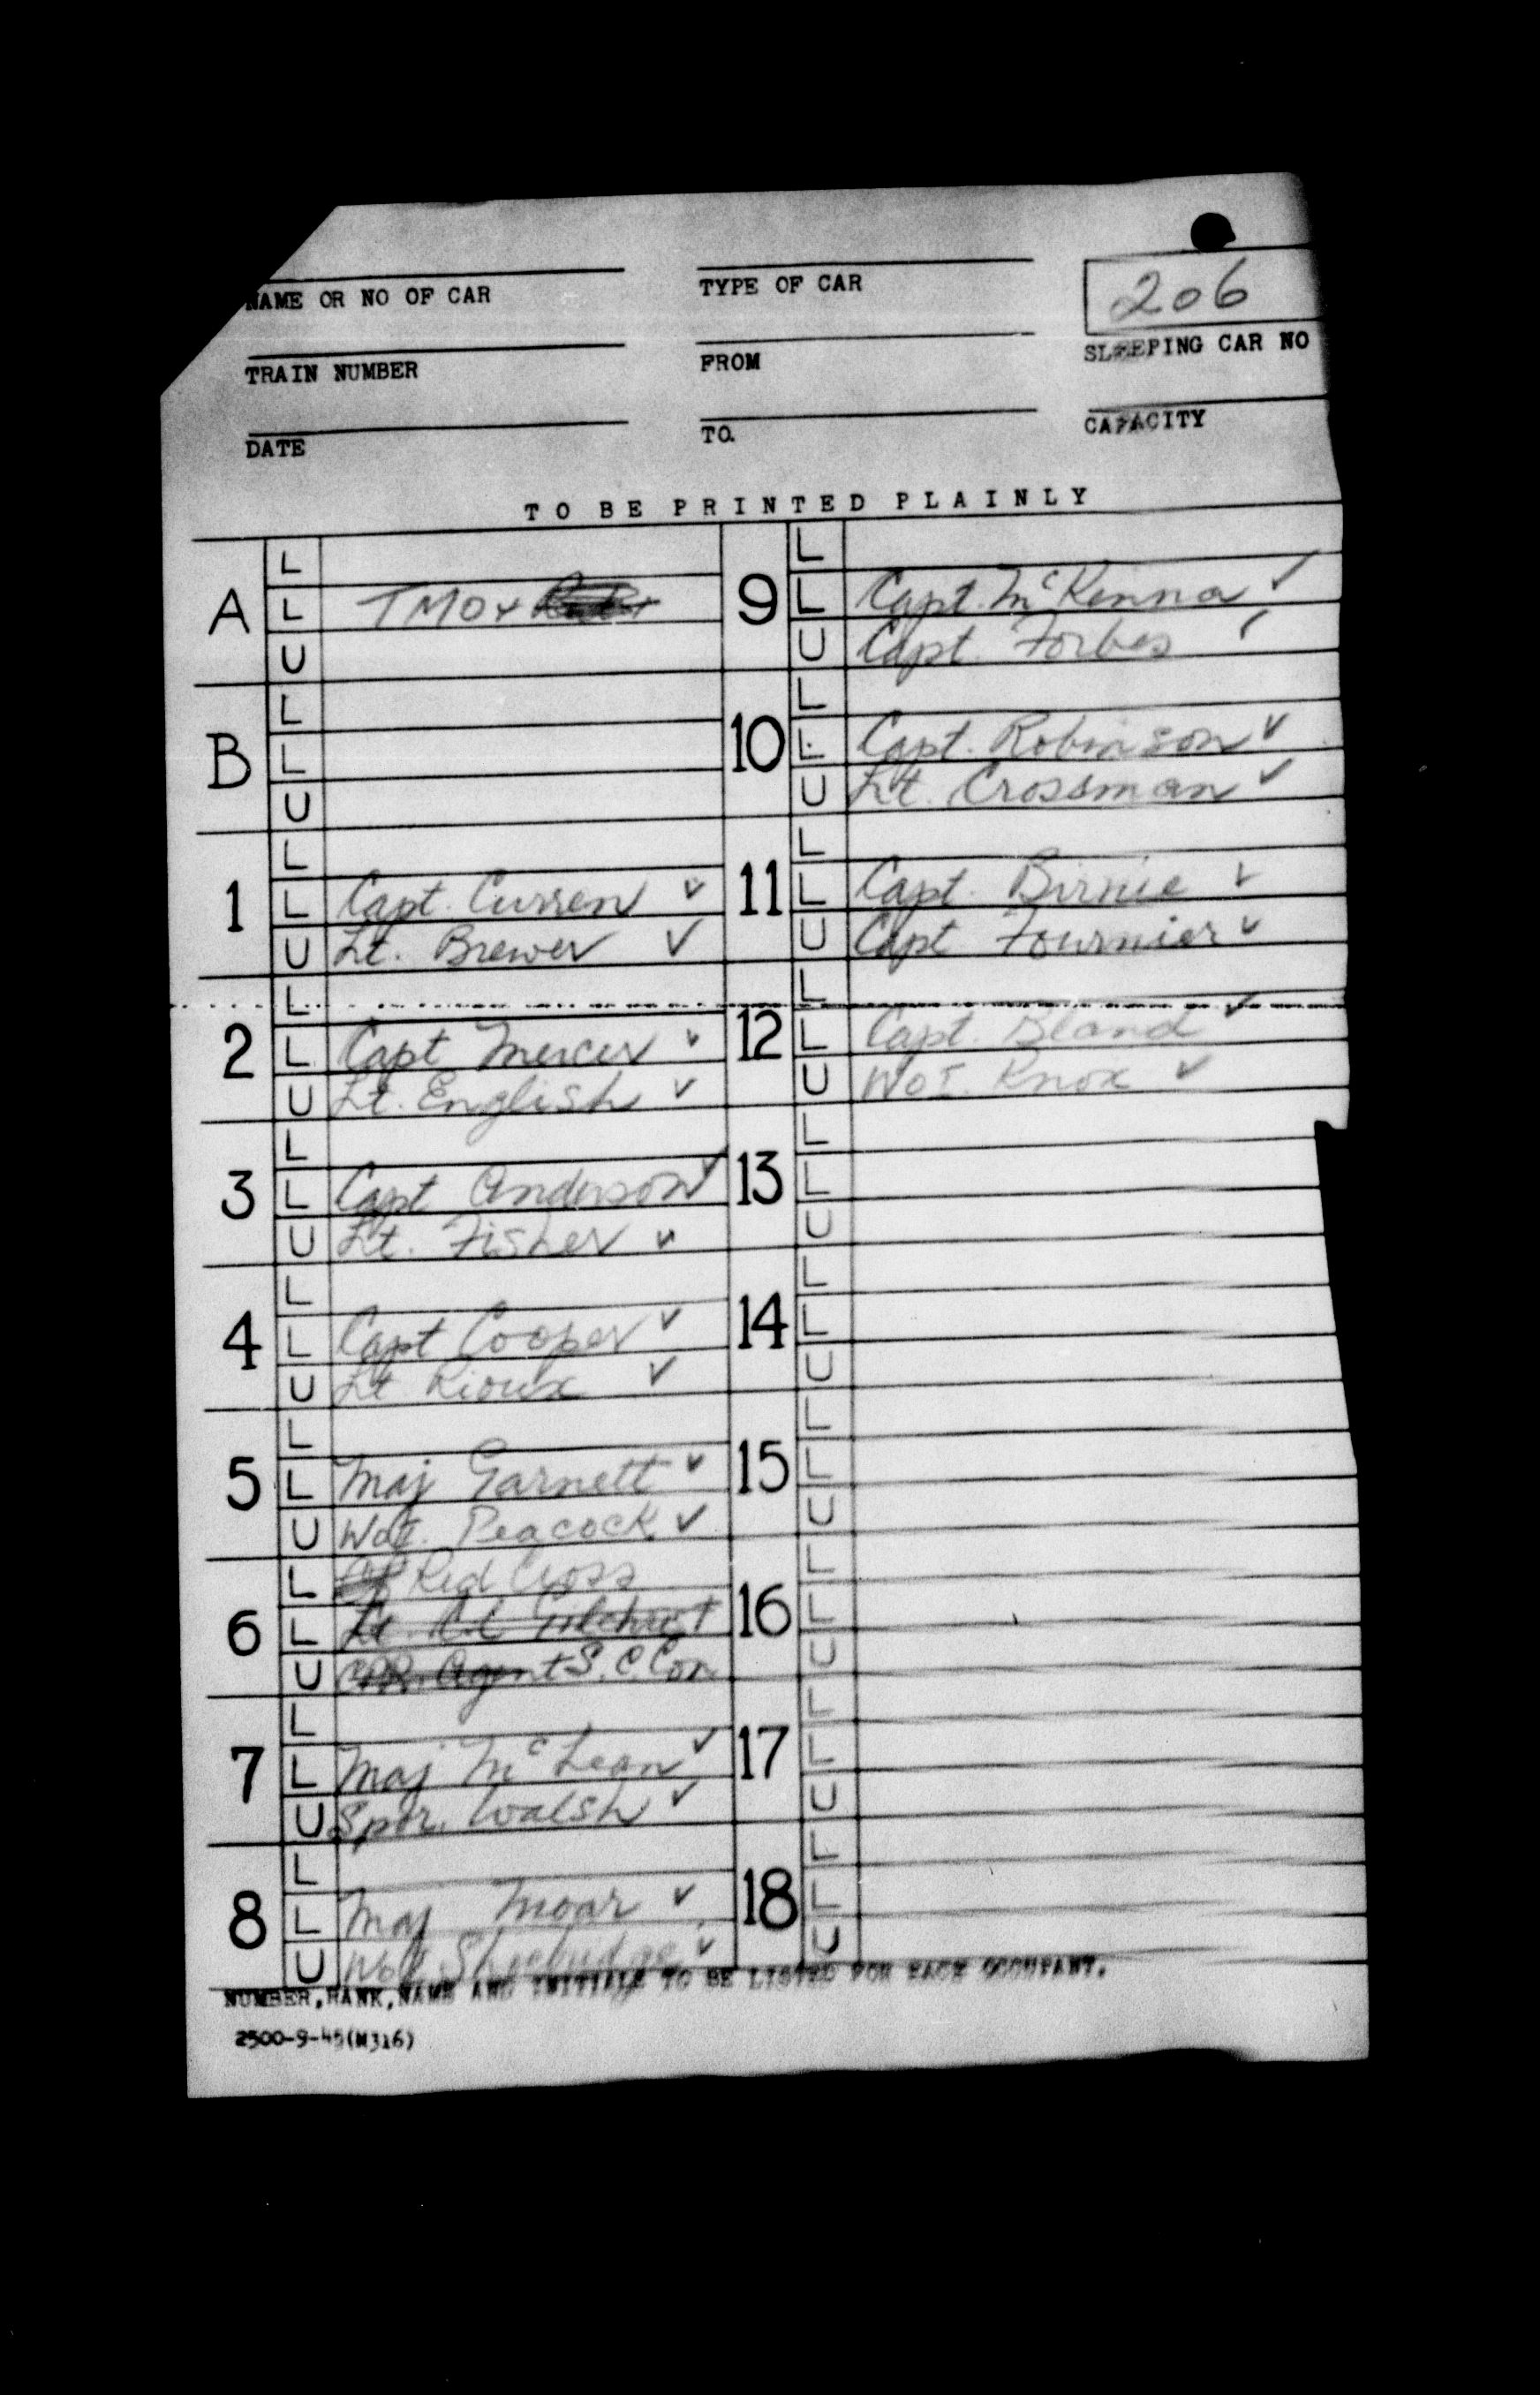 206
NAME OR NO OF CAR
TYPE OF CAR
SLEEPING CAR NO
TRAIN NUMBER
FROM
CAPACITY
DATE
TO.
TO BE PRINTED PLAINLY
A
L
L TMO +
U
B
L
L
U
1
L
L Capt. Curren ✓
U Lt. Brewer ✓
2
L
L Capt Mercer ✓
U Lt. English ✓
3
L
L Capt Anderson ✓
U Lt. Fisher ✓
4
L
L Capt Cooper ✓
U Lt Rioux ✓
5
L
L Maj Garnett ✓
U WoI. Peacock ✓
6
L Red Cross
L Lt. Gilchrist
U CPR. Agent S. C. Con
7
L
L Maj McLean ✓
U Spr. Walsh ✓
8
L
L Maj Moar ✓
U ✓
9
L
L Capt. McKenna ✓
U Capt. Forbes ✓
10
L
L Capt. Robinson ✓
U Lt. Crossman ✓
11
L
L Capt. Birnie ✓
U Capt Fournier ✓
12
L
L Capt. Bland ✓
U WOI. Knox ✓
13
L
L
U
14
L
L
U
15
L
L
U
16
L
L
U
17
L
L
U
18
L
L
U
NUMBER, RANK, NAME AND INITIALS TO BE LISTED FOR EACH OCCUPANT.
2500-9-45(M316)